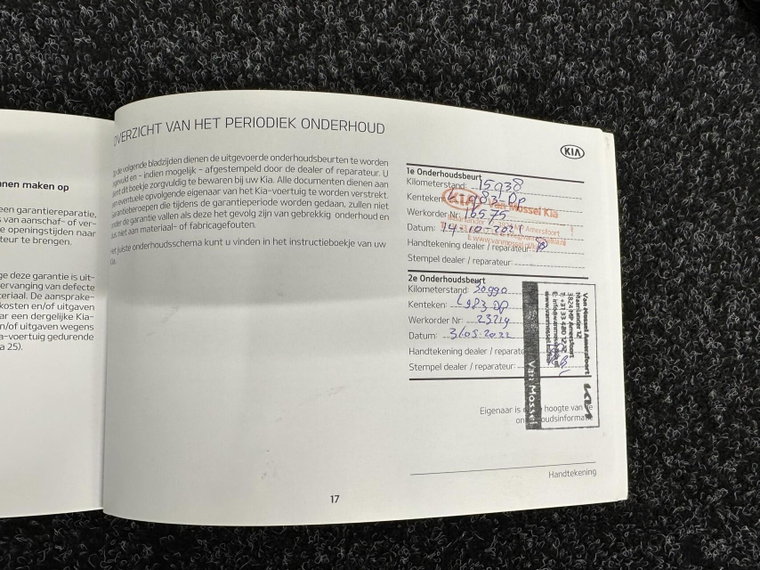 nnen maken op
een garantiereparatie,
van aanschaf- of ver-
e openingstijden naar
teur te brengen.
ge deze garantie is uit-
ervanging van defecte
teriaal. De aansprake-
kosten en/of uitgaven
ar een dergelijke Kia-
n/of uitgaven wegens
a-voertuig gedurende
a 25).
OVERZICHT VAN HET PERIODIEK ONDERHOUD
de volgende bladzijden dienen de uitgevoerde onderhoudsbeurten te worden
en - indien mogelijk - afgestempeld door de dealer of reparateur. U
dit boekje zorgvuldig te bewaren bij uw Kia. Alle documenten dienen aan
eventuele opvolgende eigenaar van het Kia-voertuig te worden verstrekt.
garantieberoepen die tijdens de garantieperiode worden gedaan, zullen niet
onder de garantie vallen als deze het gevolg zijn van gebrekkig onderhoud en
niet aan materiaal- of fabricagefouten.
juiste onderhoudsschema kunt u vinden in het instructieboekje van uw
Kia.
KIA
1e Onderhoudsbeurt
Kilometerstand: 15938
Kenteken: L 983 DP
KIA Van Mossel Kia
Werkorder Nr: 16575
Amersfoort
Datum: 14-10-2021
Handtekening dealer / reparateur:
Stempel dealer / reparateur:
2e Onderhoudsbeurt
Kilometerstand: 30990
Kenteken: L 983 DP
Werkorder Nr: 23219
Datum: 31.05.2022
Handtekening dealer / reparateur
Stempel dealer / reparateur:
Van Mossel Amersfoort
Maanlander 12
3824 MP Amersfoort
KIA
Van Mossel
Eigenaar is op de hoogte van de
onderhoudsinformatie
Handtekening
17